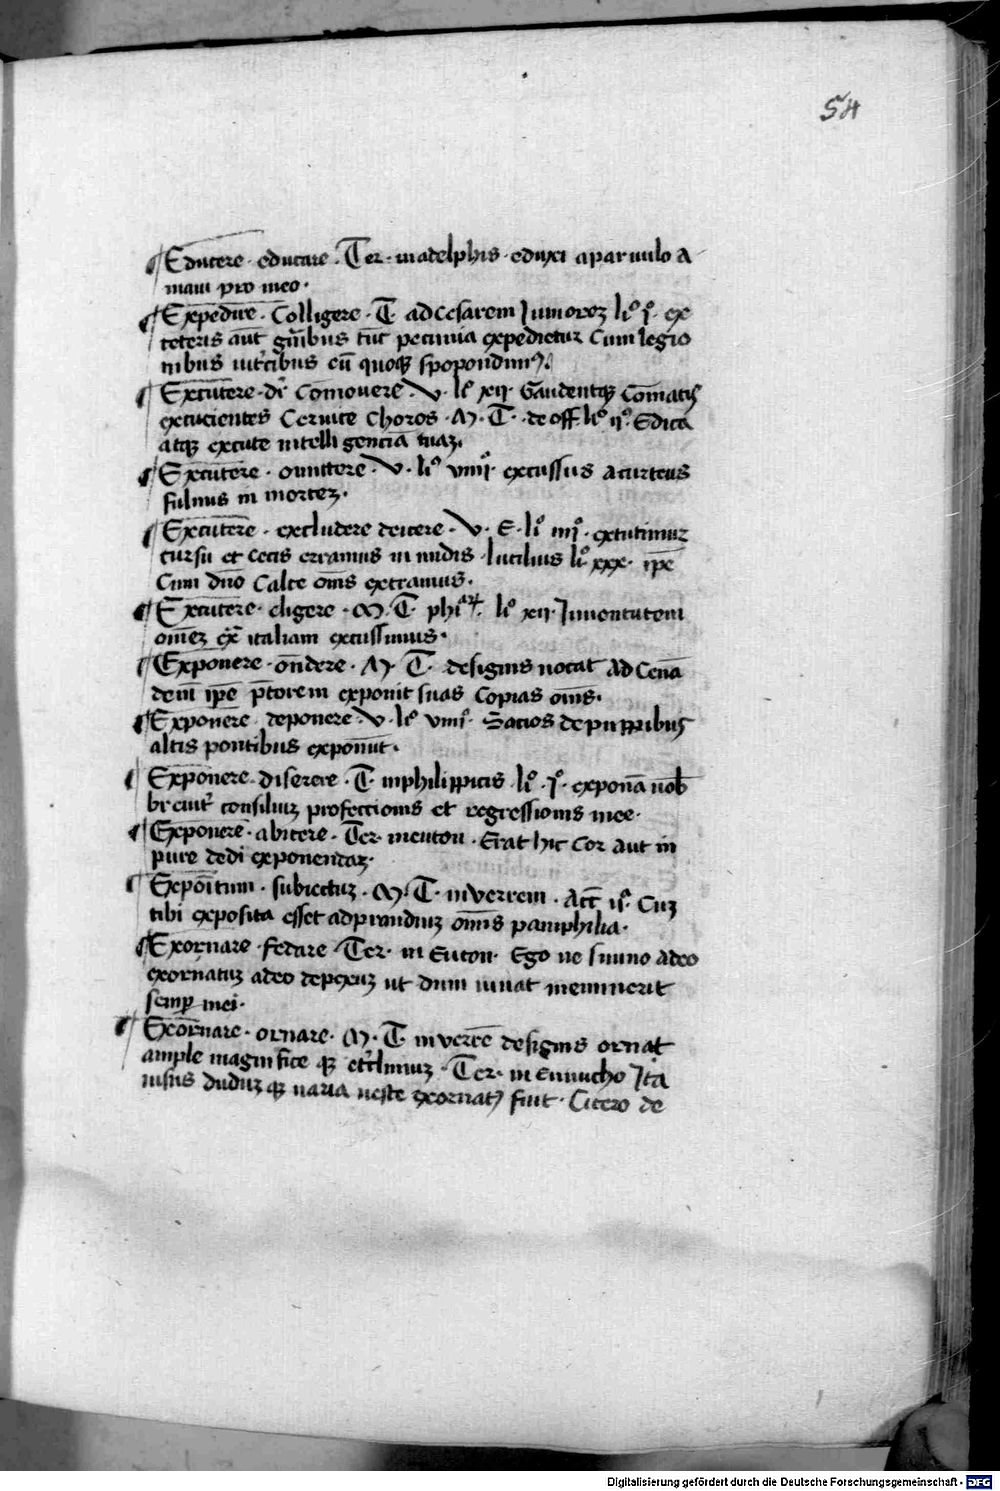 54
Educere · educare · Ter · in adelphis · eduxi a paruulo a
maui pro meo ·
Expedire · Colligere · T̄ · ad Cesarem Iuniorez li° i° · ex
ceteris aūt gn̄ibus tūc pecunia expedietur Cum legio
nibus cū quoqꝫ spopondimꝰ ·
Excutere · dr̄ Com̄ouere · V · l° xii · Gaudentqꝫ Com̄atis
excucientes Ceruice Choros · M · T̄ · de off̄ · l° ii° · Edica
atqꝫ excute intelligenciā tuaz ·
Excutere · · V · li° viiii° · excussus acurteus
fulmus in mortez ·
Excutere · excludere deicere · V · E · li° iii° · excutimur
cursu et cecis erramus in undis · lucilius li° xxx · ipē
Cum dn̄o Calce om̄s excramus ·
Excutere · eligere · M · T̄ · phi · li° xii · Iuuentutem
om̄ez ex̄ italiam excussimus ·
Exponere · on̄dere · M · T̄ · de signis uocat ad Cenā
dein̄ ipē p̄torem exponit suas Copias om̄s ·
Exponere · deponere · V · l° viiii° · Sacios de puppibus
altis pontibus exponūt ·
Exponere · diserere · T̄ · in philippicis · li° · i° · exponā uob̄
breuit̄ consiliuz profeccionis et regressionis mee ·
Exponere · abicere · Ter · in euton · Erat hic Cor aut in
pure dedi exponendaz ·
Expoītum · subiectuz · M · T̄ · in verrem · Act̄ ii° · Cuz
tibi exposita esset ad prandiuz om̄is pamphilia ·
Exornare · fedare · Ter · in Euton · Ego ne si uiuo adeo
exornatuz adeo depexuz ut dum uiuat meminerit
semꝑ mei ·
Exornare · ornare · M · T̄ · in verrē de signis ornat
ample magnifice qꝫ · Ter · in Eunucho Ita
uisus duduz qꝫ uaria ueste exornatꝰ fuit · Cicero de
Digitalisierung gefördert durch die Deutsche Forschungsgemeinschaft - DFG